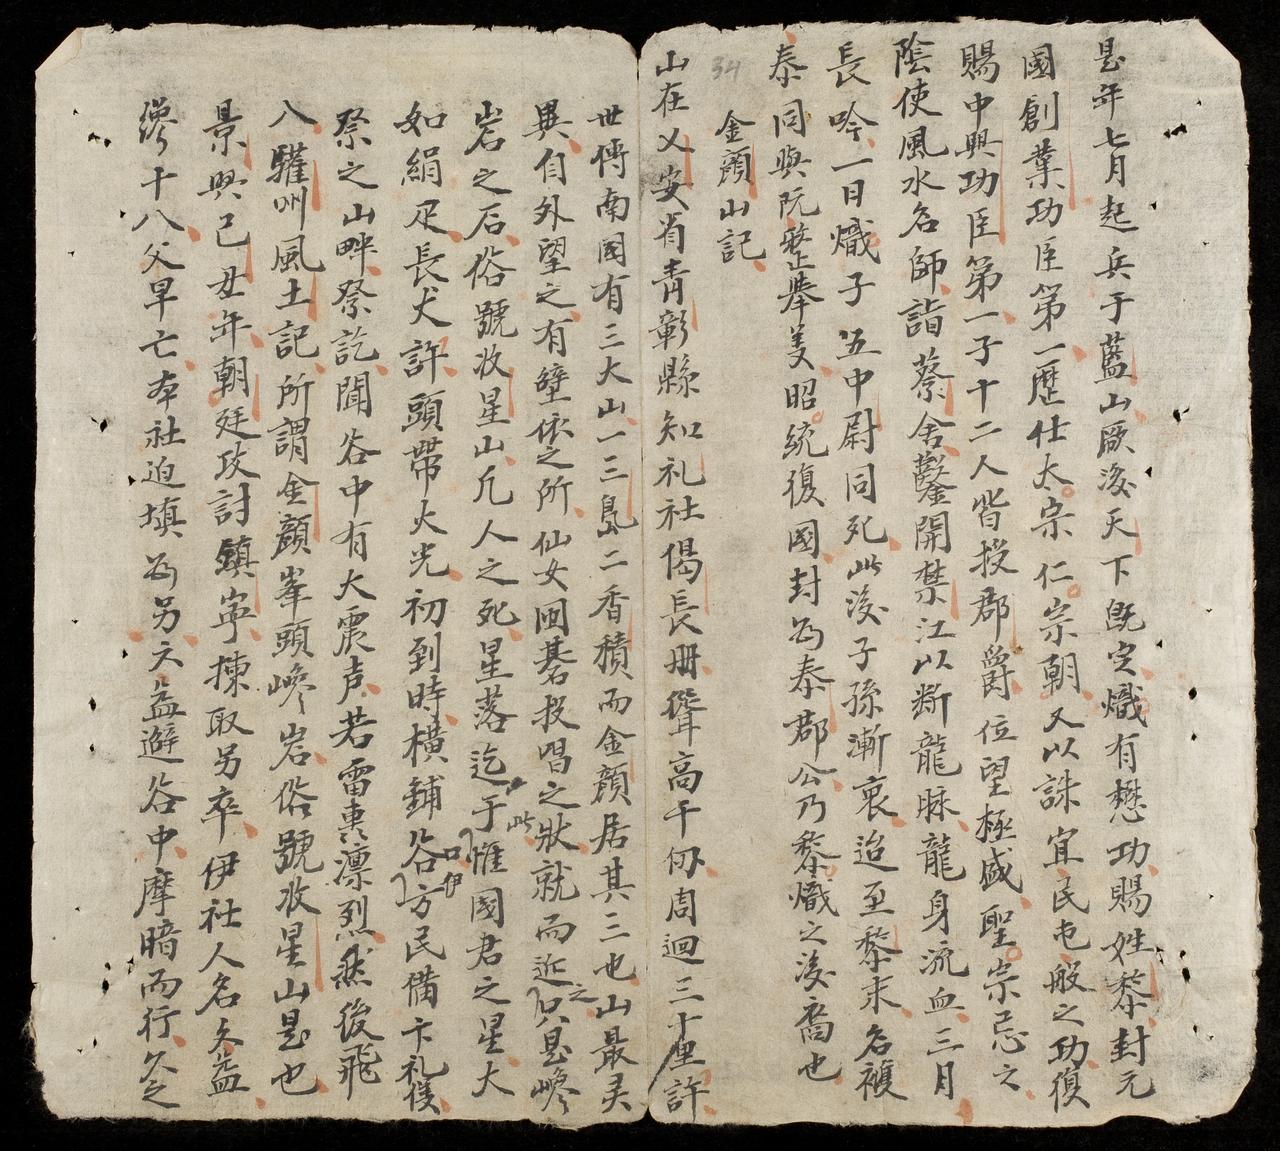 是年七月起兵于藍山厥後天下既定熾有懋功賜姓黎封元
國創業功臣第一歷仕太宗仁宗朝又以誅宜民屯般之功復
賜中興功臣第一子十二人皆授郡爵位望極盛聖宗忌之
陰使風水名師詣蔡舍鑿開禁江以斷龍脉龍身流血三月
長吟一日熾子五中尉同死此後子孫漸衰迨至黎末名複
泰同與阮整舉美昭統復國封為泰郡公乃黎熾之後裔也
34
金顏山記
山在乂安省青彰縣知礼社偈長冊聳高千仞周迴三十里許
世傳南國有三大山一三島二香積而金顏居其三也山最灵
異自外望之有壁依之所仙女囲碁投唱之狀就而近之只是巉
岩之石俗號收星山凡人之死星落迄于此惟國君之星大
如絹疋長丈許頭帶火光初到時橫鋪谷口伊方民備卞礼後
祭之山畔祭訖聞谷中有大震声若雷轟凛烈然後飛
八驩州風土記所謂金顏峯頭巉岩俗號收星山是也
景興己丑年朝廷攻討鎮寧揀取另卒伊社人名文益
纔十八父早亡本社迫填為另文益避谷中摩暗而行久之